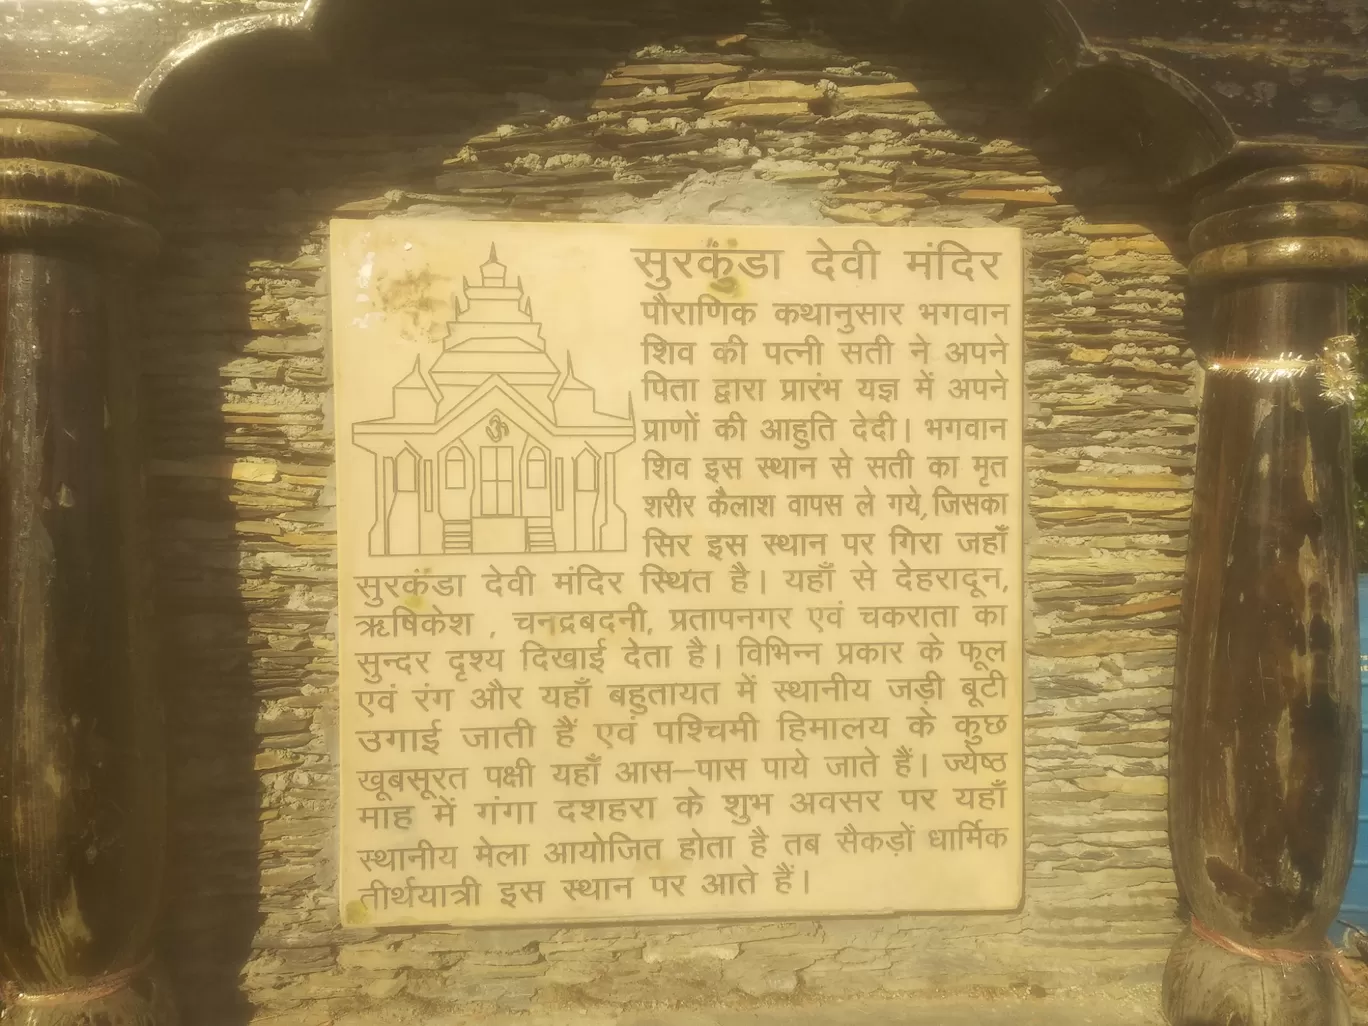 सुरकुंडा देवी मंदिर
पौराणिक कथानुसार भगवान
शिव की पत्नी सती ने अपने
पिता द्वारा प्रारंभ यज्ञ में अपने
प्राणों की आहुति देदी। भगवान
शिव इस स्थान से सती का मृत
शरीर कैलाश वापस ले गये, जिसका
सिर इस स्थान पर गिरा जहाँ
सुरकंडा देवी मंदिर स्थित है। यहाँ से देहरादून,
ऋषिकेश , चनद्रबदनी, प्रतापनगर एवं चकराता का
सुन्दर दृश्य दिखाई देता है। विभिन्न प्रकार के फूल
एवं रंग और यहाँ बहुतायत में स्थानीय जड़ी बूटी
उगाई जाती हैं एवं पश्चिमी हिमालय के कुछ
खूबसूरत पक्षी यहाँ आस–पास पाये जाते हैं। ज्येष्ठ
माह में गंगा दशहरा के शुभ अवसर पर यहाँ
स्थानीय मेला आयोजित होता है तब सैकड़ों धार्मिक
तीर्थयात्री इस स्थान पर आते हैं।
ॐ